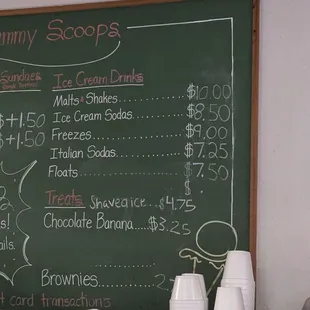 mmy Scoops
Sundaes
Ice Cream Drinks
Malts & Shakes............$10.00
$+1.50
Ice Cream Sodas..........$8.50
$+1.50
Freezes......................$9.00
Italian Sodas..............$7.25
Floats.......................$7.50
$ .
Treats
Shaved ice...$4.75
Chocolate Banana.....$3.25
s!
ails.
Brownies.............2
card transactions